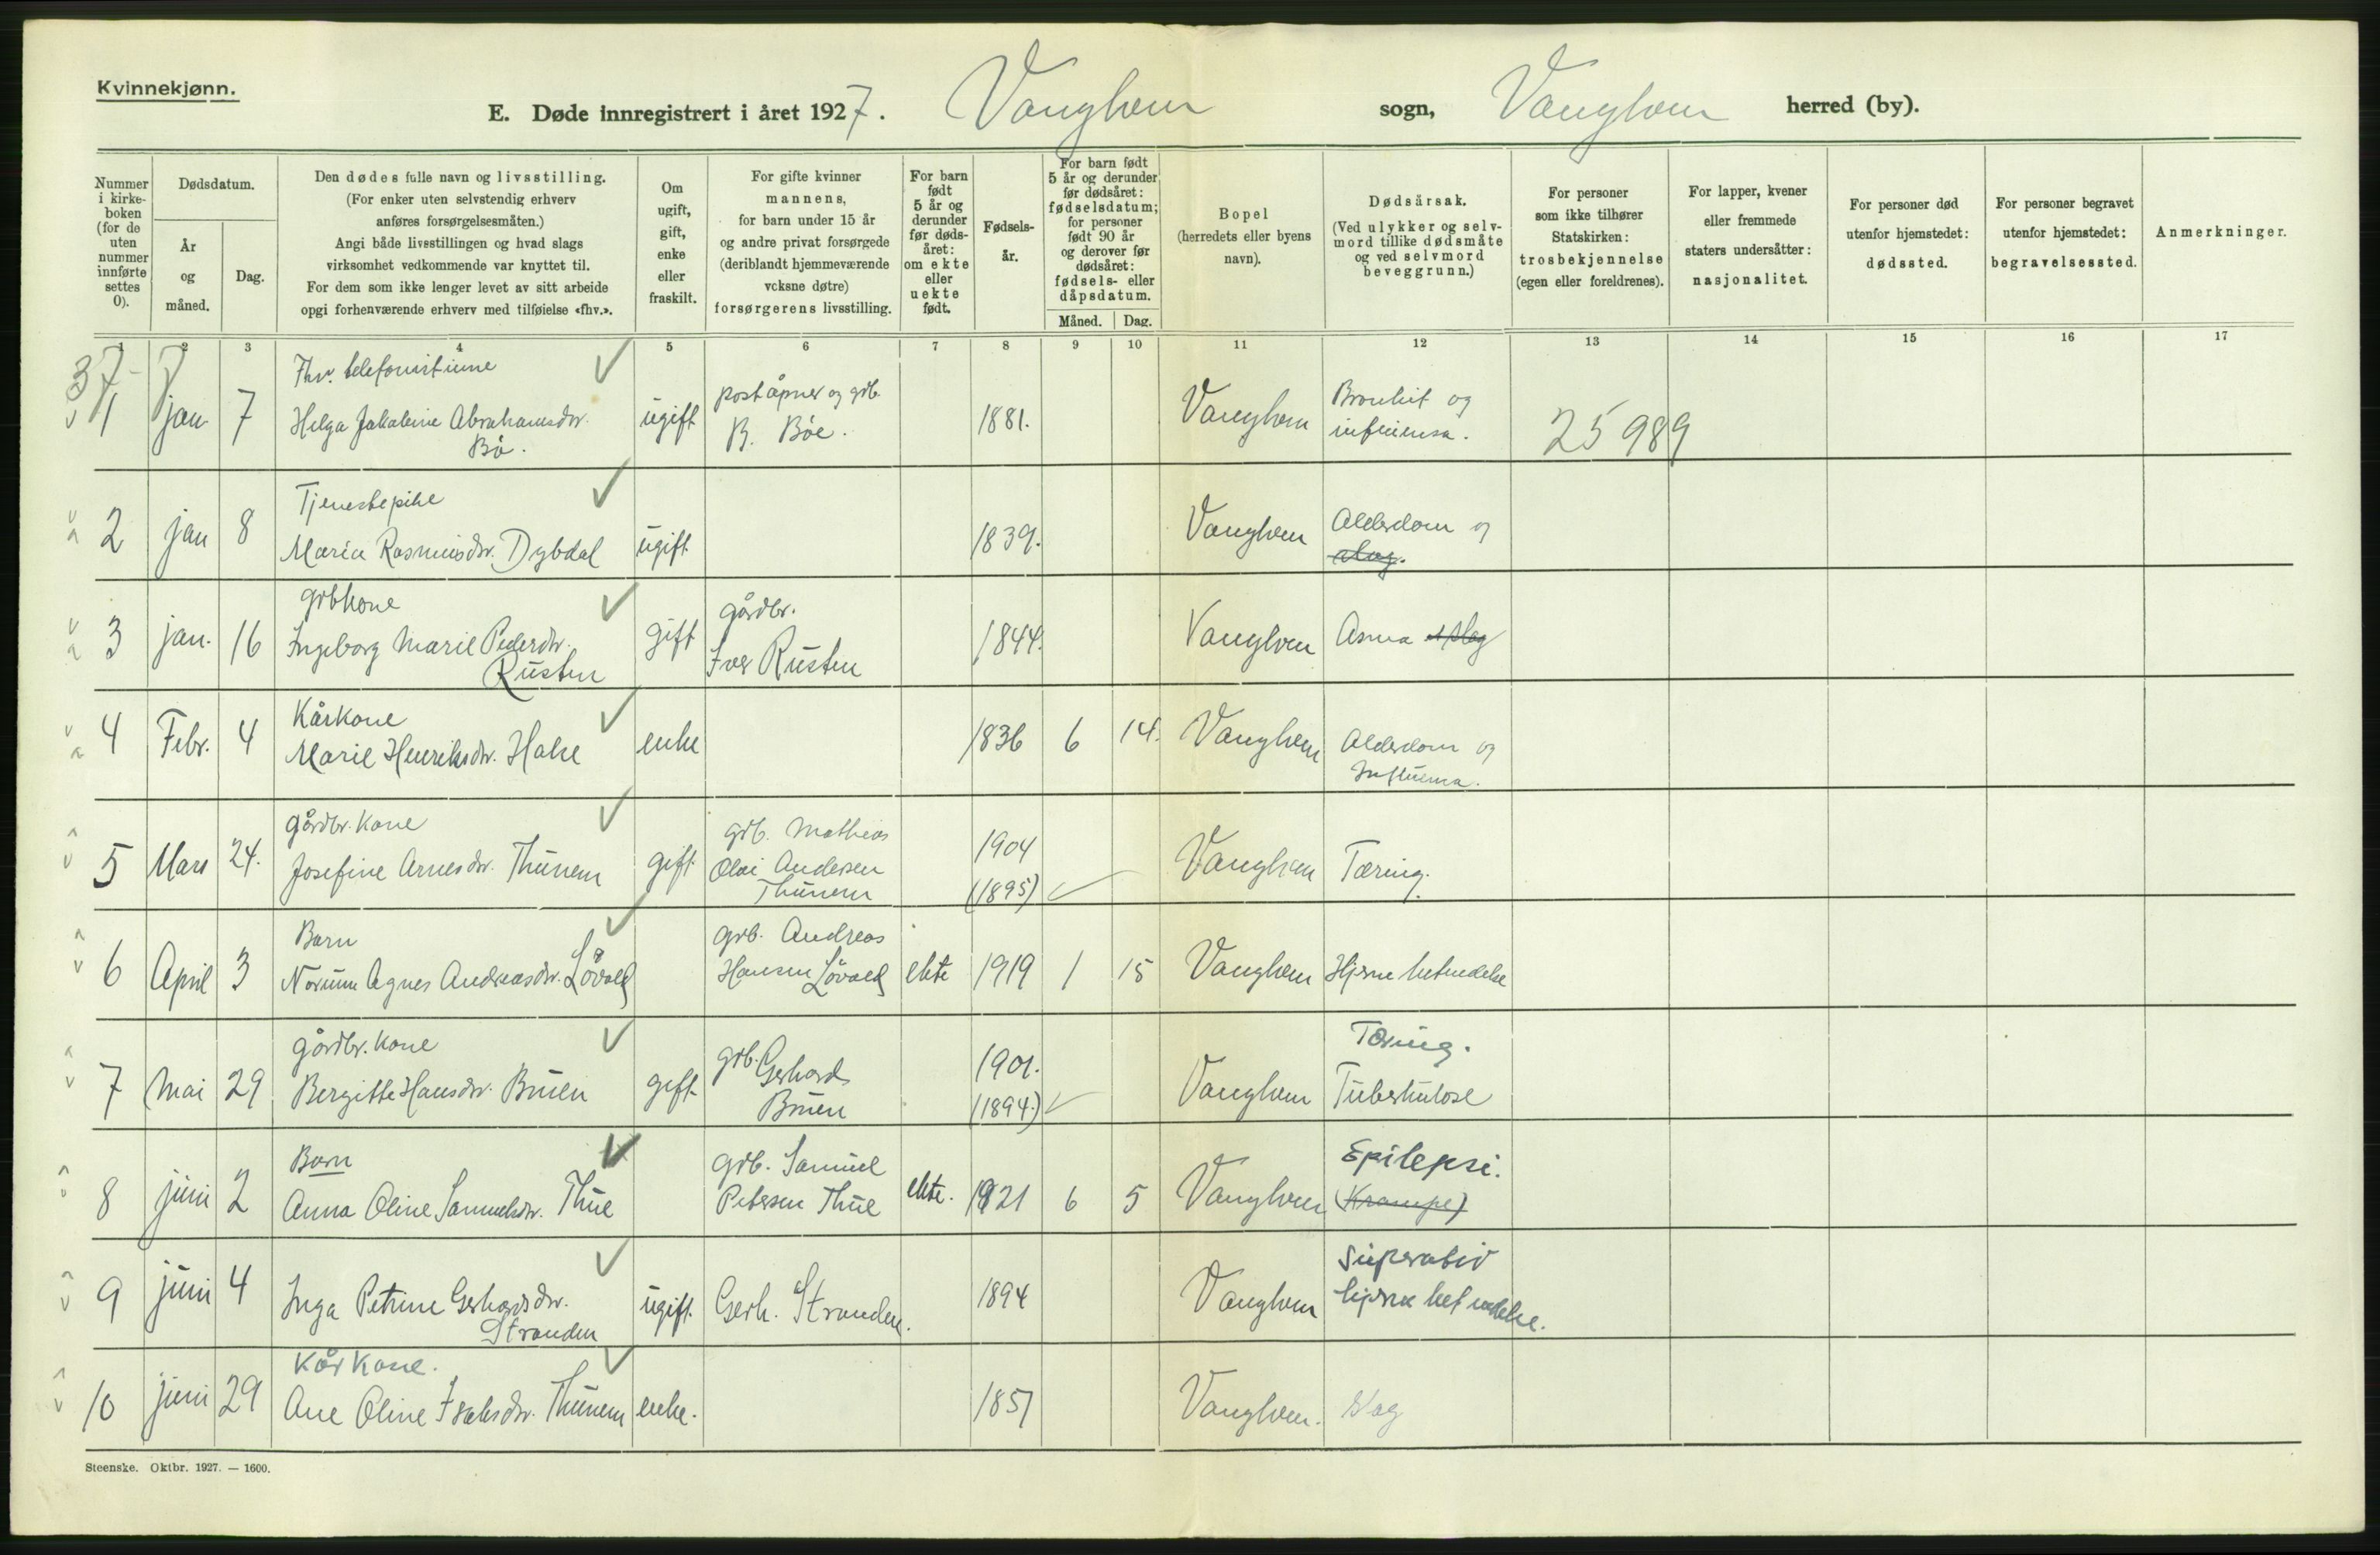 Kvinnekjønn.
E. Døde innregistrert i året 1927. Vanylven sogn, Vanylven herred (by).
Nummer i kirkeboken (for de uten nummer innførte settes 0).
Dødsdatum.
År og måned.
Dag.
Den dødes fulle navn og livsstilling.
(For enker uten selvstendig erhverv
anføres forsørgelsesmåten.)
Angi både livsstillingen og hvad slags
virksomhet vedkommende var knyttet til.
For dem som ikke lenger levet av sitt arbeide
opgi forhenværende erhverv med tilføielse «fhv.».
Om ugift, gift, enke eller fraskilt.
For gifte kvinner
mannens,
for barn under 15 år
og andre privat forsørgede
(deriblandt hjemmeværende
voksne døtre)
forsørgerens livsstilling.
For barn født 5 år og derunder før dødsåret: om ekte eller uekte født.
Fødselsår.
For barn født 5 år og derunder før dødsåret: fødselsdatum; for personer født 90 år og derover før dødsåret: fødsels- eller dåpsdatum.
Måned. Dag.
Bopel
(herredets eller byens
navn).
Dødsårsak.
(Ved ulykker og selvmord tillike dødsmåte og ved selvmord beveggrunn.)
For personer
som ikke tilhører
Statskirken:
trosbekjennelse
(egen eller foreldrenes).
For lapper, kvener
eller fremmede
staters undersåtter:
nasjonalitet.
For personer død
utenfor hjemstedet:
dødssted.
For personer begravet
utenfor hjemstedet:
begravelsessted.
Anmerkninger.
1 2 3 4 5 6 7 8 9 10 11 12 13 14 15 16 17
37
Fhv. telefonistinne
1 jan. 7 Helga Jakobine Abrahamsdtr. Bö. ugift poståpner og grb. B. Böe. 1881. Vanylven Bronkit og influensa. 25 989
Tjenestepike
2 jan 8 Maria Rasmusdtr. Dybdal ugift 1839. Vanylven Alderdom og slag.
grbkone
3 jan. 16 Ingeborg Marie Pedersdtr. Rusten gift gårdbr. Iver Rusten 1844. Vanylven Asma slag
Kårkone
4 Febr. 4 Marie Henriksdtr. Hake enke 1836 6 14. Vanylven Alderdom og Influensa.
gårdbr. kone
5 Mars 24. Josefine Arnesdtr. Thunem gift grb. Mathias Olai Andersen Thunem 1904 (1895) Vanylven Tæring.
Barn
6 April 3 Agnes Andreasdtr. Lövold grb. Andreas Hansen Lövold ekte 1919 1 15 Vanylven Hjernebetendelse
gårdbr. kone
7 Mai 29 Bergitte Hansdtr. Bruen gift grb. Gerhard Bruen 1901. (1894) Vanylven Tæring. Tuberkulose
Barn
8 juni 2 Anna Oline Samuelsdtr. Thue grb. Samuel Petersen Thue ekte. 1921 6 5 Vanylven Epilepsi. (Krampe)
9 juni 4 Inga Petrine Gerhardsdtr. Stranden ugift. Gerh. Stranden. 1894 Vanylven Superativ hjernebetendelse.
Kårkone.
10 juni 29 Ane Oline Isaksdtr. Thunem enke. 1851 Vanylven. Slag
Steenske. Oktbr. 1927. — 1600.